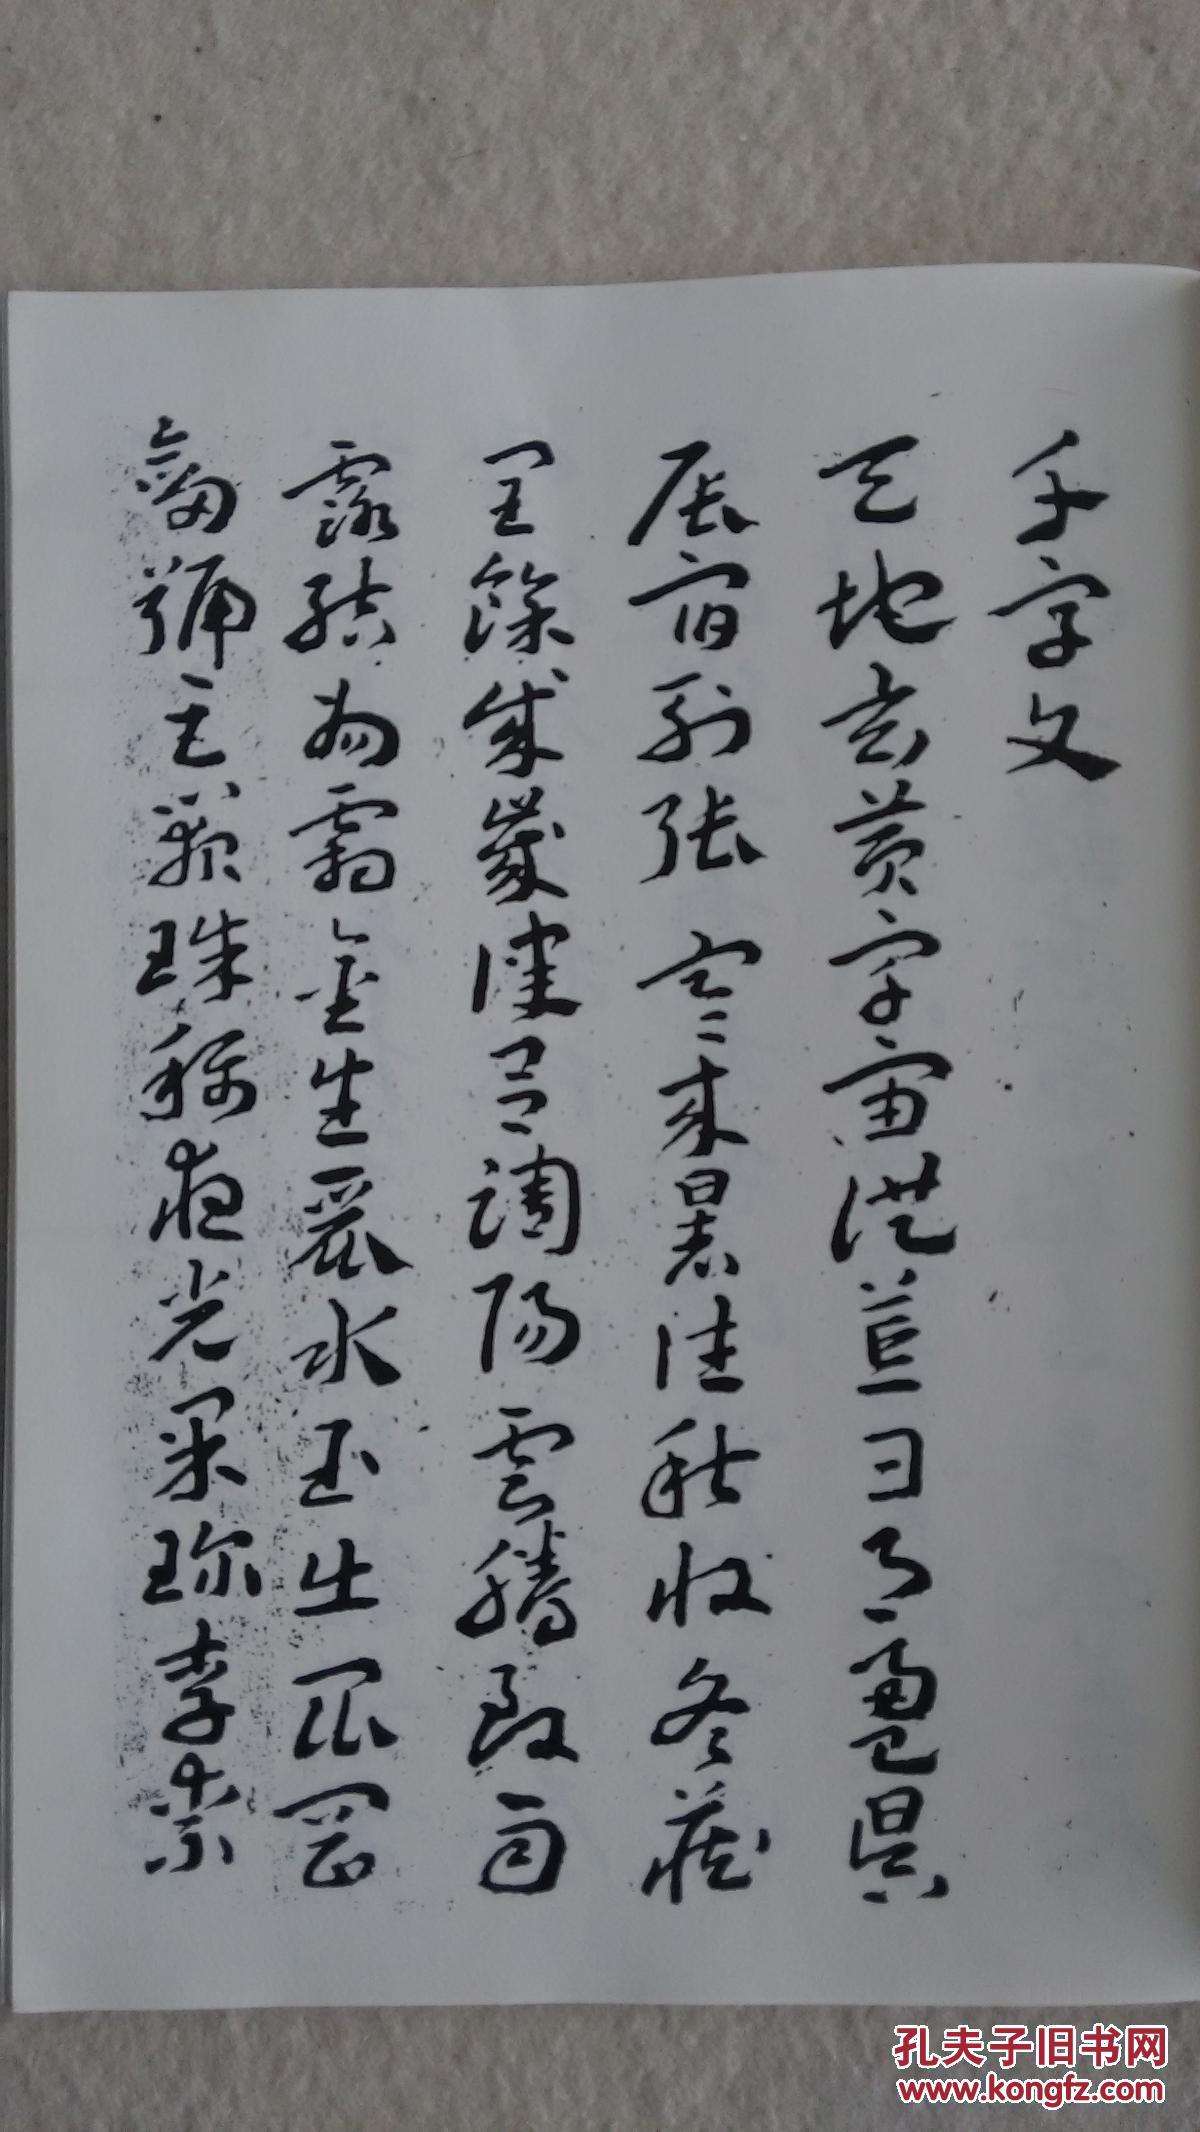 千字文
天地玄黄宇宙洪荒日月盈昃
辰宿列张寒来暑往秋收冬藏
閏餘成歲律吕調陽雲騰致雨
露結為霜金生麗水玉出崑岡
劍號巨闕珠稱夜光果珍李柰
孔夫子旧书网
www.kongfz.com